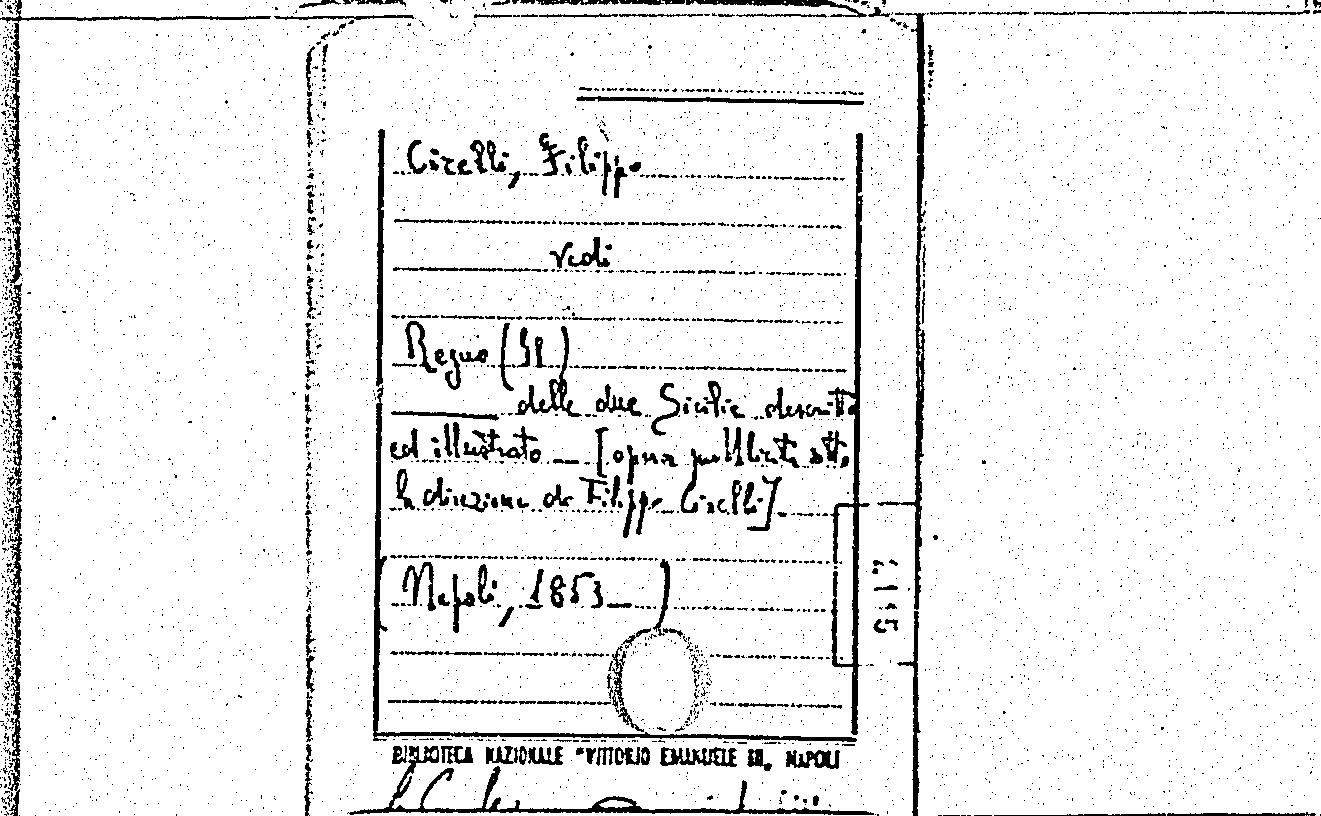 Cirelli, Filippo
vedi
Regno (Il)
delle due Sicilie descritto
ed illustrato — [opera pubblicata sotto
la direzione di Filippo Cirelli]
(Napoli, 1853 — )
BIBLIOTECA NAZIONALE "VITTORIO EMANUELE III„ NAPOLI